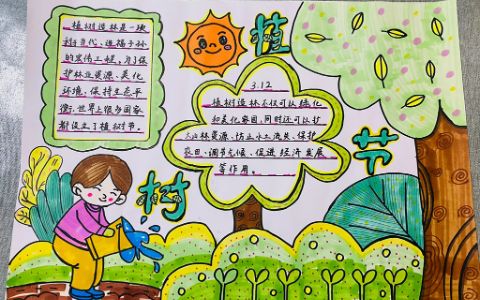 植树造林是一项
利于当代、造福子孙
的宏伟工程,为了保
护林业资源、美化
环境、保持生态平
衡,世界上很多国家
都设立了植树节。
植
树
节
3.12
植树造林不仅可以绿化
和美化家园,同时还可以扩
大山林资源、防止水土流失、保护
农田、调节气候、促进经济发展
等作用。